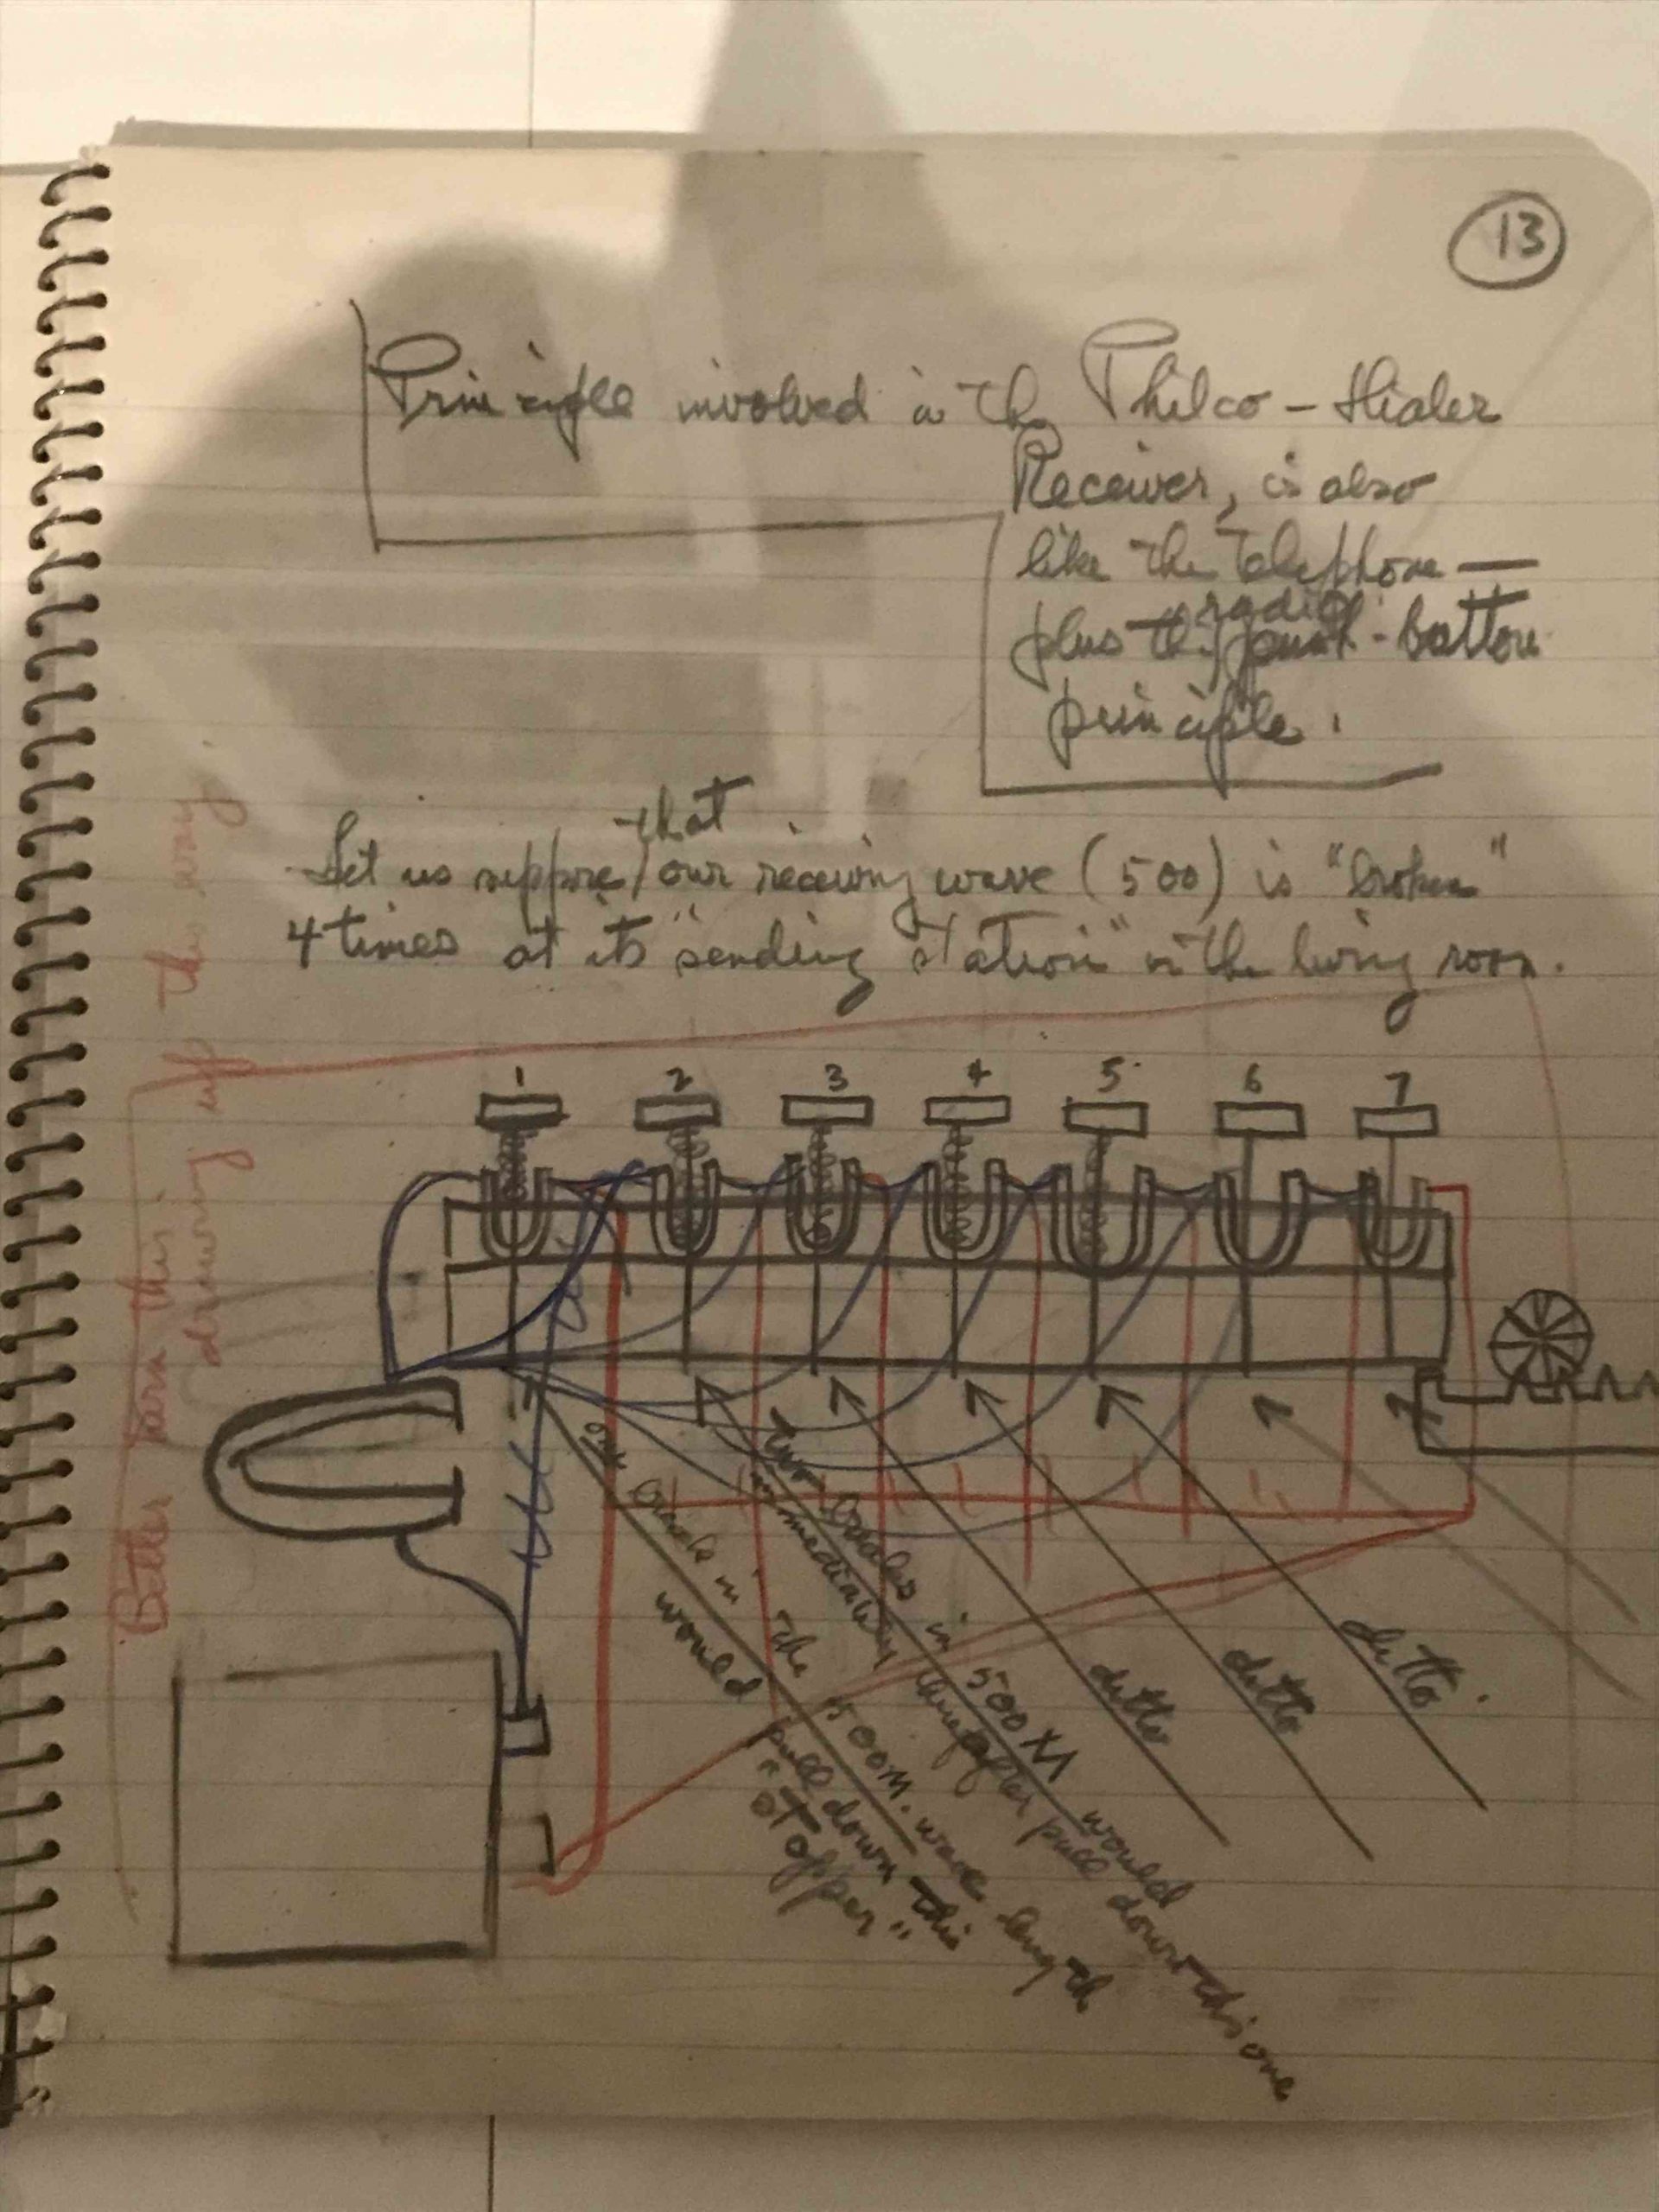 13
Principle involved in the Philco-Hialer
Receiver, is also
like the telephone —
plus the radio push-button
principle.
Let us suppose that our receiving wave (500) is "broken"
4 times at its "sending station" in the living room.
1 2 3 4 5 6 7
Better turn this
drawing up this way
one break in the 500M. wave length
would pull down this
"stopper"
two breaks in 500 M would
immediately thereafter pull down this one
ditto
ditto
ditto.